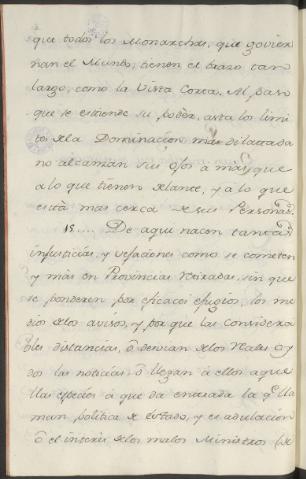 que todos los Monarchas, que govier
nan el Mundo, tienen el brazo tan
largo, como la Vista Corta. Al paso
que se estiende su poder, asta los limi
tes de la Dominacion mas dilattada
no alcanzan sus ojos à mas, que
a lo que tienen delante, y à lo que
està mas cerca de sus Personas.
15.... De aqui nacen tantas
injusticias, y vejaciones como se cometen
y más en Provincias Retiradas, sin que
se ponderen por eficaces efugios, los me
dios de los avisos, y por que las Considera
bles distancias, ò desvian de los Reales oy
dos las noticias, ò llegan à ellos aque
llas especies à que da entrada la q.e lla
man politica de Estado, y es adulacion
ò el interes de los malos Ministros